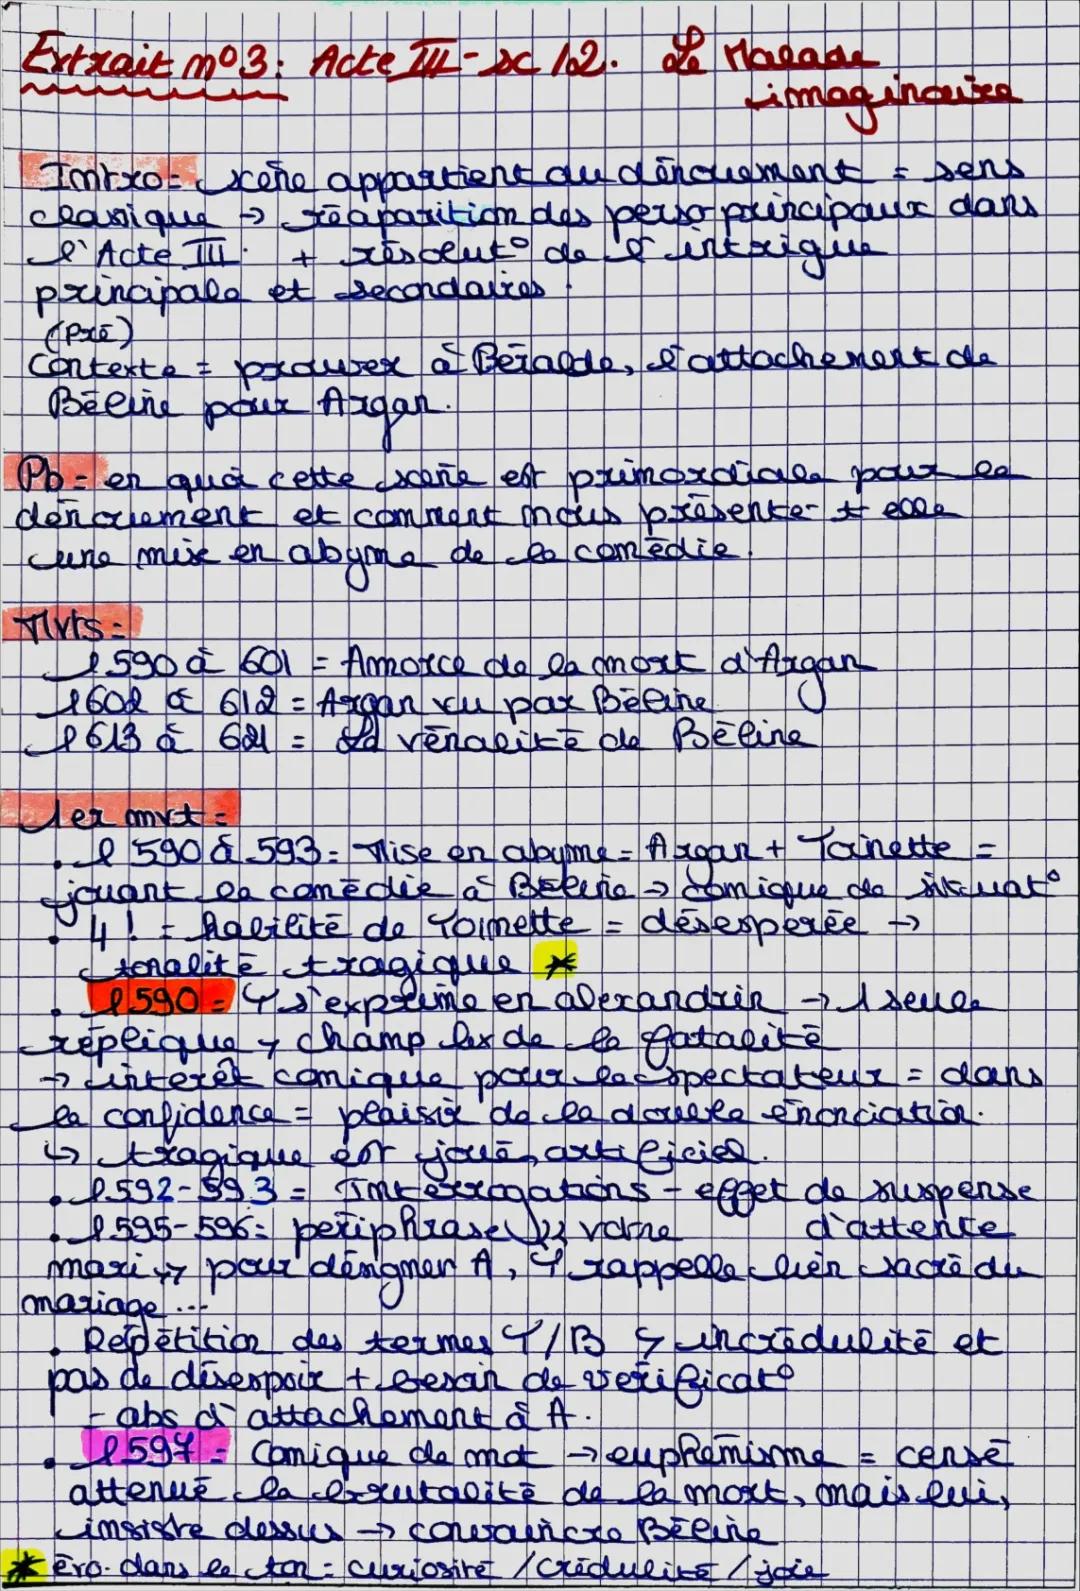 Extrait n°3: Acte III - sc 12. Le Malade
imaginaire
Intro = scène appartient au dénouement = sens
classique → réaparition des perso principaux dans
l'Acte III. + résolut° de l'intrigue
principale et secondaires.
(Pré)
Contexte = prouver à Béralde, l'attachement de
Béline pour Argan.
Pb = en quoi cette scène est primordiale pour le
dénouement et comment nous présente-t-elle
une mise en abyme de la comédie.
Mvts =
l 590 à 601 = Amorce de la mort d'Argan
l 602 à 612 = Argan vu par Béline
l 613 à 621 = La vénalité de Béline
1er mvt =
• l 590 à 593 = Mise en abyme = Argan + Toinette =
jouant la comédie à Béline → comique de situat°
• 4 ! = habilité de Toinette = désesperée →
tonalité tragique *
• l 590 = T s'exprime en alexandrin → 1 seule
réplique, champ lex de la fatalité
→ intérêt comique pour le spectateur = dans
la confidence = plaisir de la double énonciation.
↳ tragique est joué, artificiel.
• l 592-593 = Interrogations - effet de suspense
d'attente
• l 595-596 = périphrase " votre
mari " pour désigner A, T rappelle lien sacré du
mariage ...
• Répétition des termes T/B ↳ incrédulité et
pas de désespoir + besoin de vérificat°
- abs d'attachement à A.
• l 597 = Comique de mot → euphémisme = censé
attenué la brutalité de la mort, mais lui,
insiste dessus → convaincre Béline
* évo. dans le ton = curiosité / crédulité / joie